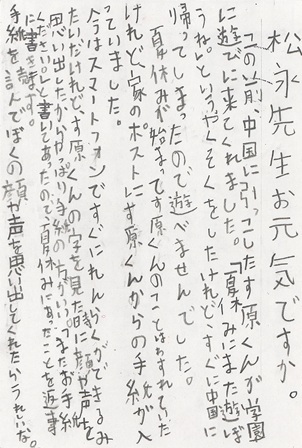 松永先生お元気ですか。
「この前、中国に引っこしたす原くんが学園
に遊びに来てくれました。「夏休みにまた遊ぼ
うね。」というやくそくをしたけれど、すぐに中国に
帰ってしまったので遊べませんでした。
夏休みが始まってす原くんのことはわすれていた
けれど、家のポストにす原くんからの手紙が入
っていました。
今はスマートフォンですぐにれんらくができるみ
たいだけれど、す原くんの字を見た時に顔や声を
思い出したからやっぱり手紙の方がいい。またお手紙
ください。と書いてあったので夏休みにあったことを返事
に書きます。
手紙を読んでぼくの顔が声を思い出してくれたらうれしいな。